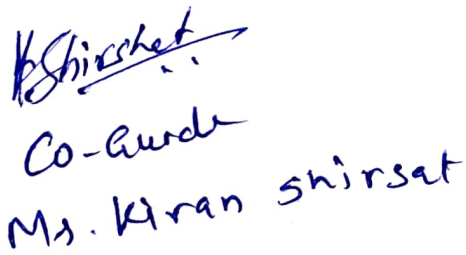 KShirshat
Co-Guide
Ms. Kiran Shirsat